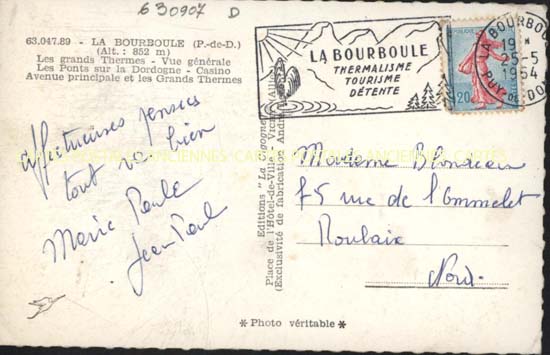 630907 D
63.047.89 - LA BOURBOULE (P.-de-D.)
(Alt. : 852 m)
Les grands Thermes - Vue générale
Les Ponts sur la Dordogne - Casino
Avenue principale et les Grands Thermes
LA BOURBOULE
THERMALISME
TOURISME
DÉTENTE
LA BOURBOULE
19 *
25-5
1964
PUY-DE-DOME
0,20
affectueuses pensées
tout va bien
Marie Paule
Jean Paul
Editions "La Cigogne"
Place de l'Hôtel-de-Ville - Vichy (Allier)
(Exclusivité de fabrication André
Madame Blondeau
75 rue de l'Ommelet
Roubaix
Nord.
* Photo véritable *